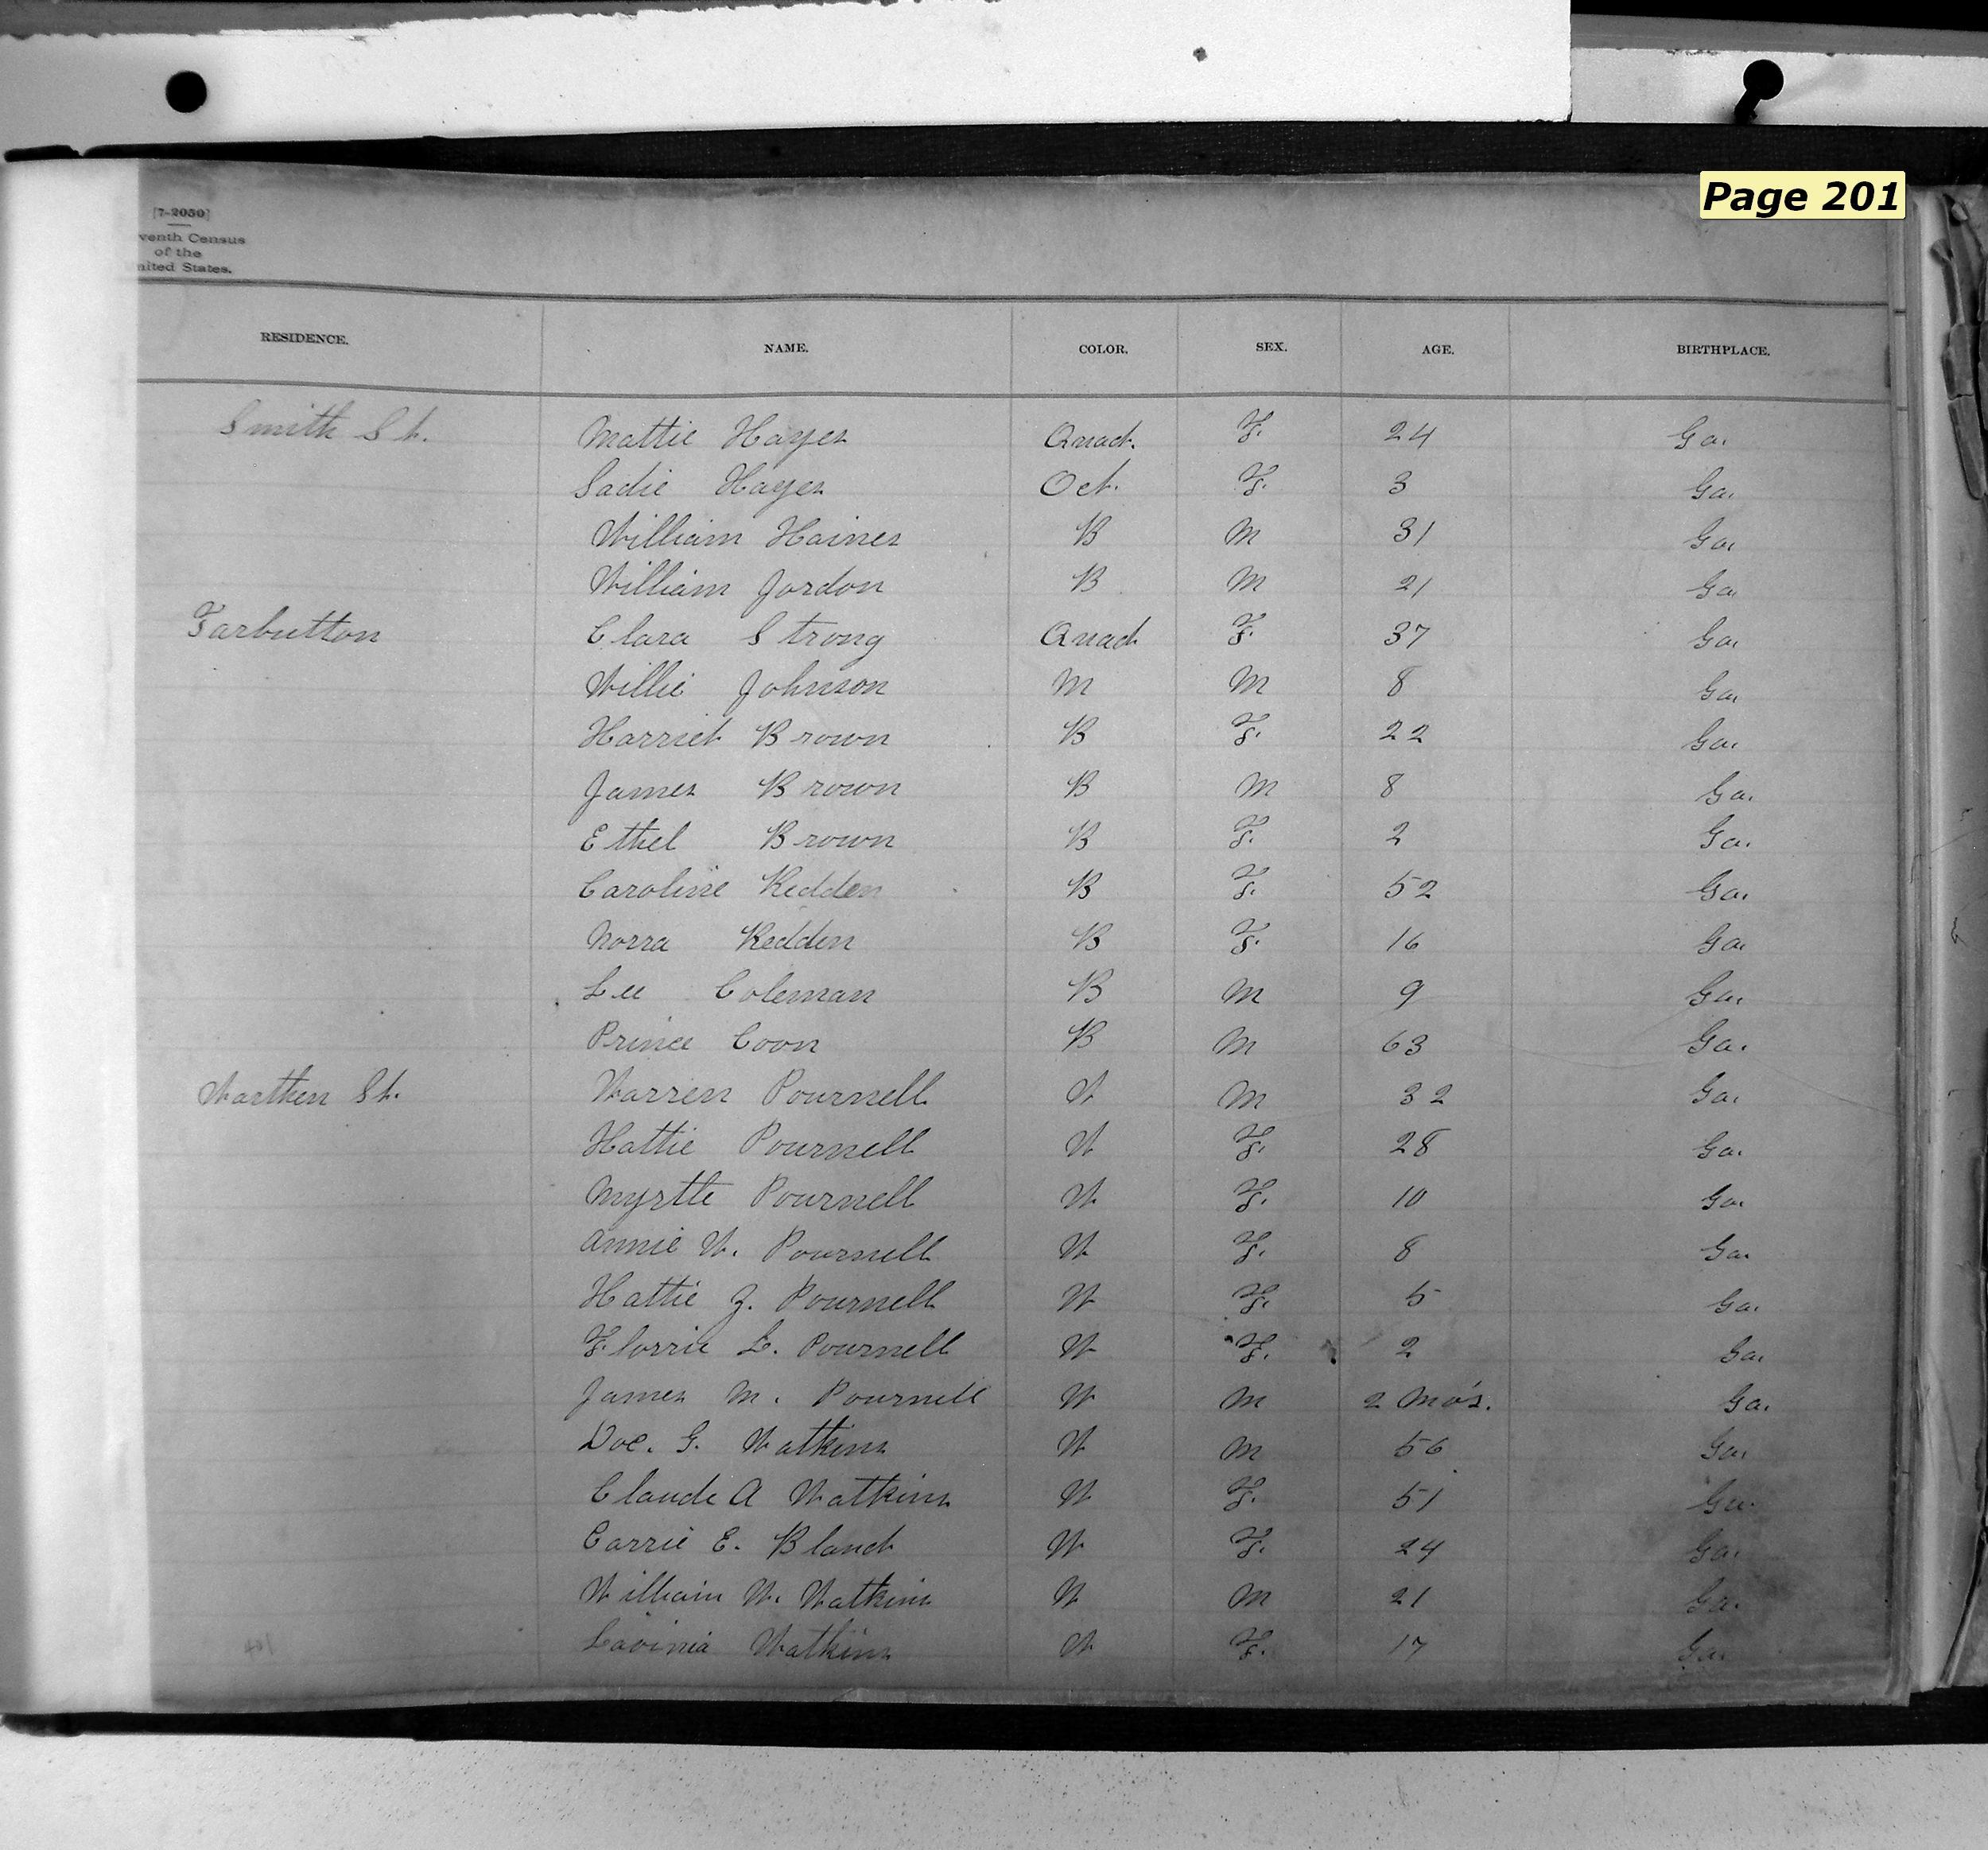 Page 201
[7-2050]
venth Census
of the
nited States.
RESIDENCE. NAME. COLOR. SEX. AGE. BIRTHPLACE.
Smith St. Mattie Hayes Quad. F. 24 Ga.
Sadie Hayes Oct. F. 3 Ga.
William Haines B M 31 Ga.
William Jordon B M 21 Ga
Tarbutton Clara Strong Quad F. 37 Ga.
Willie Johnson M M 8 Ga.
Harriet Brown B F. 22 Ga.
James Brown B M 8 Ga.
Ethel Brown B F. 2 Ga.
Caroline Kedden B F. 52 Ga.
Norra Kedden B F. 16 Ga.
Lee Coleman B M 9 Ga.
Prince Coon B M 63 Ga.
Warthen St. Warren Pournell W M 32 Ga.
Hattie Pournell W F. 28 Ga.
Myrtle Pournell W F. 10 Ga.
Annie W. Pournell W F. 8 Ga.
Hattie Z. Pournell W F. 5 Ga.
Florrie L. Pournell W F. 2 Ga.
James M. Pournell W M 2 Mo's. Ga.
Doc. G. Watkins W M 56 Ga.
Claude A Watkins W F. 51 Ga.
Carrie E. Bland W F. 24 Ga.
William W. Watkins W M 21 Ga.
Lavinia Watkins W F. 17 Ga.